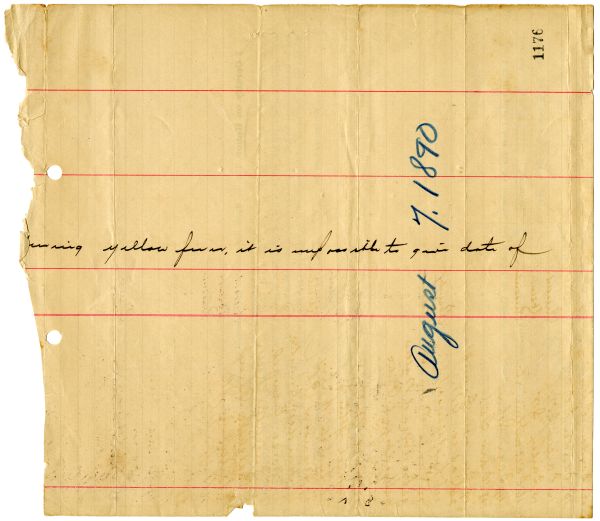 1176
August 7. 1890
yellow fever, it is impossible to give date of